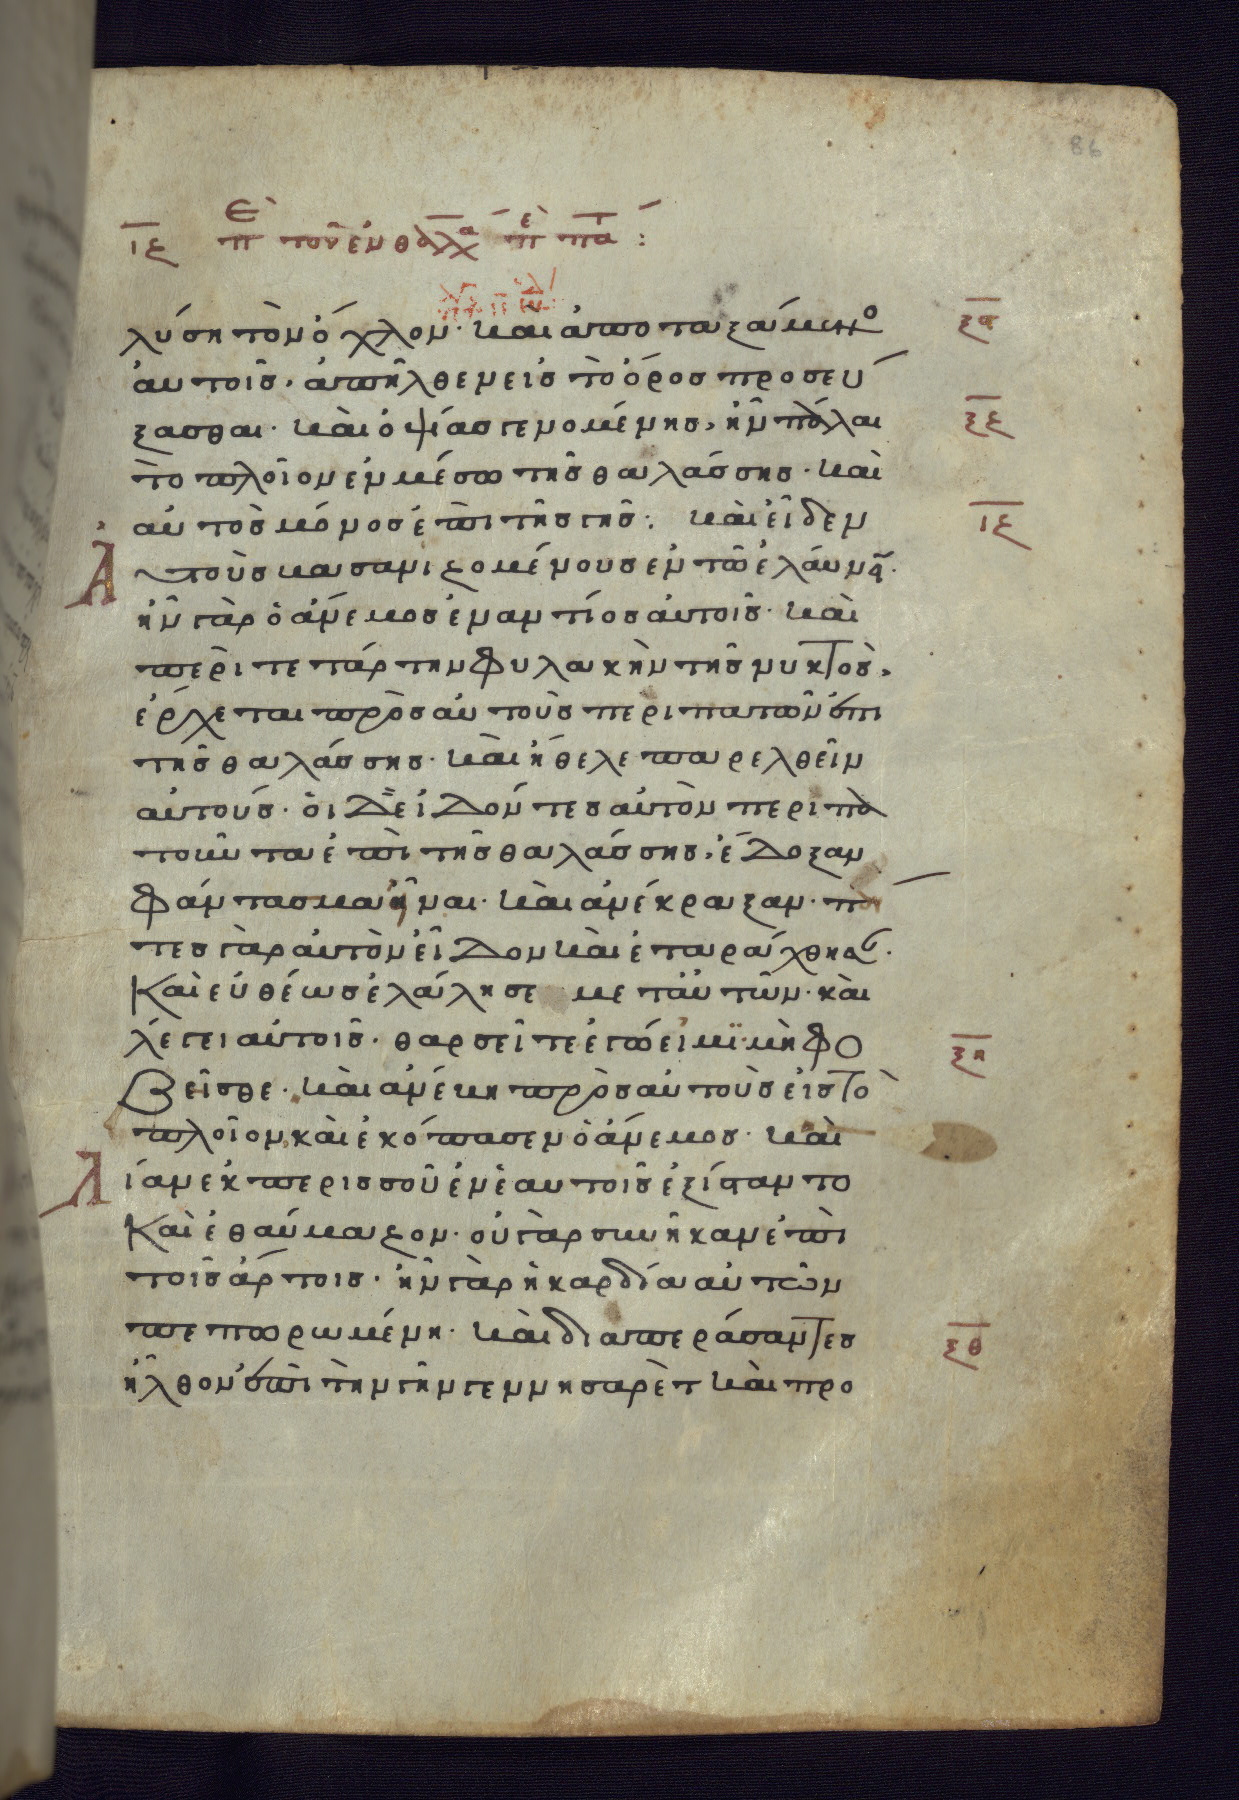 86
ιζ περὶ τοῦ ἐν θαλάσσῃ περιπάτου :
λύση τὸν ὄχλον· και ἀποταξάμενο
ἀυτοῖς, ἀπῆλθεν εἰς τὸ ὄρος προσεύ
ξασθαι· καὶ ὀψίας γενομένης, ἦν πάλαι
τὸ πλοῖον ἐν μέσω τῆς θαλάσσης· καὶ
αὐτὸς μόνος ἐπὶ τῆς γῆς: καὶ εἶδεν
ἀυτοὺς βασανιζομένους ἐν τῶ ἐλάυνειν·
ἦν γὰρ ὁ ἄνεμος ἐναντίος ἀυτοῖς· καὶ
περὶ τετάρτην φυλακὴν τῆς νυκτὸς,
ἔρχεται πρὸς αὐτοὺς περιπατῶν ἐπὶ
τῆς θαλάσσης· καὶ ἤθελε παρελθεῖν
ἀυτούς· ὁι δὲ ἰδόντες ἀυτὸν περιπα
τοῦντα ἐπὶ τῆς θαλάσσης, ἔδοξαν
φάντασμα εἶναι· καὶ ἀνέκραξαν· πάν
τες γὰρ ἀυτὸν εἶδον καὶ ἐταράχθησαν·
Καὶ εὐθέως ἐλάλησε μετ ἀυτῶν· καὶ
λέγει ἀυτοῖς· θαρσεῖτε ἐγώ εἰμϊ· μὴ φο
βεῖσθε· καὶ ἀνέβη πρὸς αὐτοὺς εἰς τὸ
πλοῖον, καὶ ἐκόπασεν ὁ ἄνεμος· καὶ
λίαν ἐκ περισσοῦ ἐν ἑαυτοῖς ἐξίσταντο
Καὶ ἐθαύμαζον· οὐ γὰρ συνῆκαν ἐπὶ
τοῖς ἄρτοις· ἦν γὰρ ἡ καρδία αὐτῶν
πεπωρωμένη· καὶ διαπεράσαντες
ἦλθον ἐπὶ τὴν γῆν γεννησαρὲτ καὶ προ
ξϛ
ξζ
ιζ
ξη
ξθ